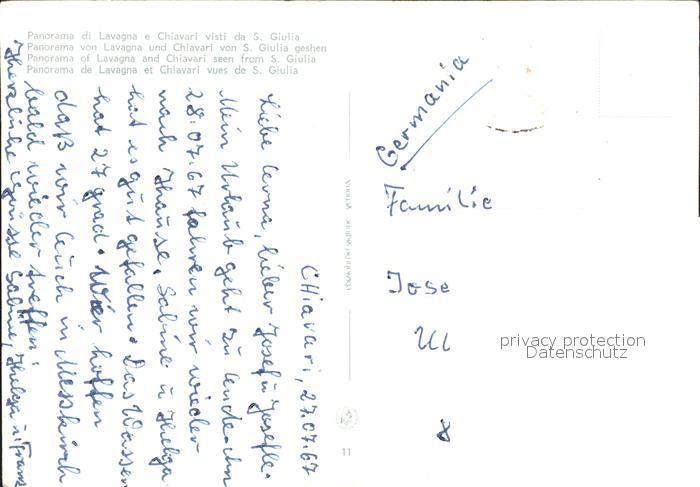 Panorama di Lavagna e Chiavari visti da S. Giulia
Panorama von Lavagna und Chiavari von S. Giulia geshen
Panorama of Lavagna and Chiavari seen from S. Giulia
Panorama de Lavagna et Chiavari vues de S. Giulia
Chiavari, 27.07.67
Liebe Erna, lieber Josef u. Josefle.
Mein Urlaub geht zu Ende. Am
28.07.67 fahren wir wieder
nach Hause. Sabine u Helga
hat es gut gefallen. Das Wasser
hat 27 grad. Wir hoffen
daß wir Euch in Messkirch
bald wieder treffen!
Herzliche Grüsse Sabine, Helga u. Franz
Germania
Familie
Jose
privacy protection
Datenschutz
11